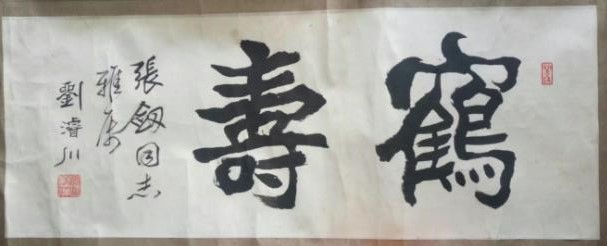 鶴壽
張釼同志
雅属
劉濬川